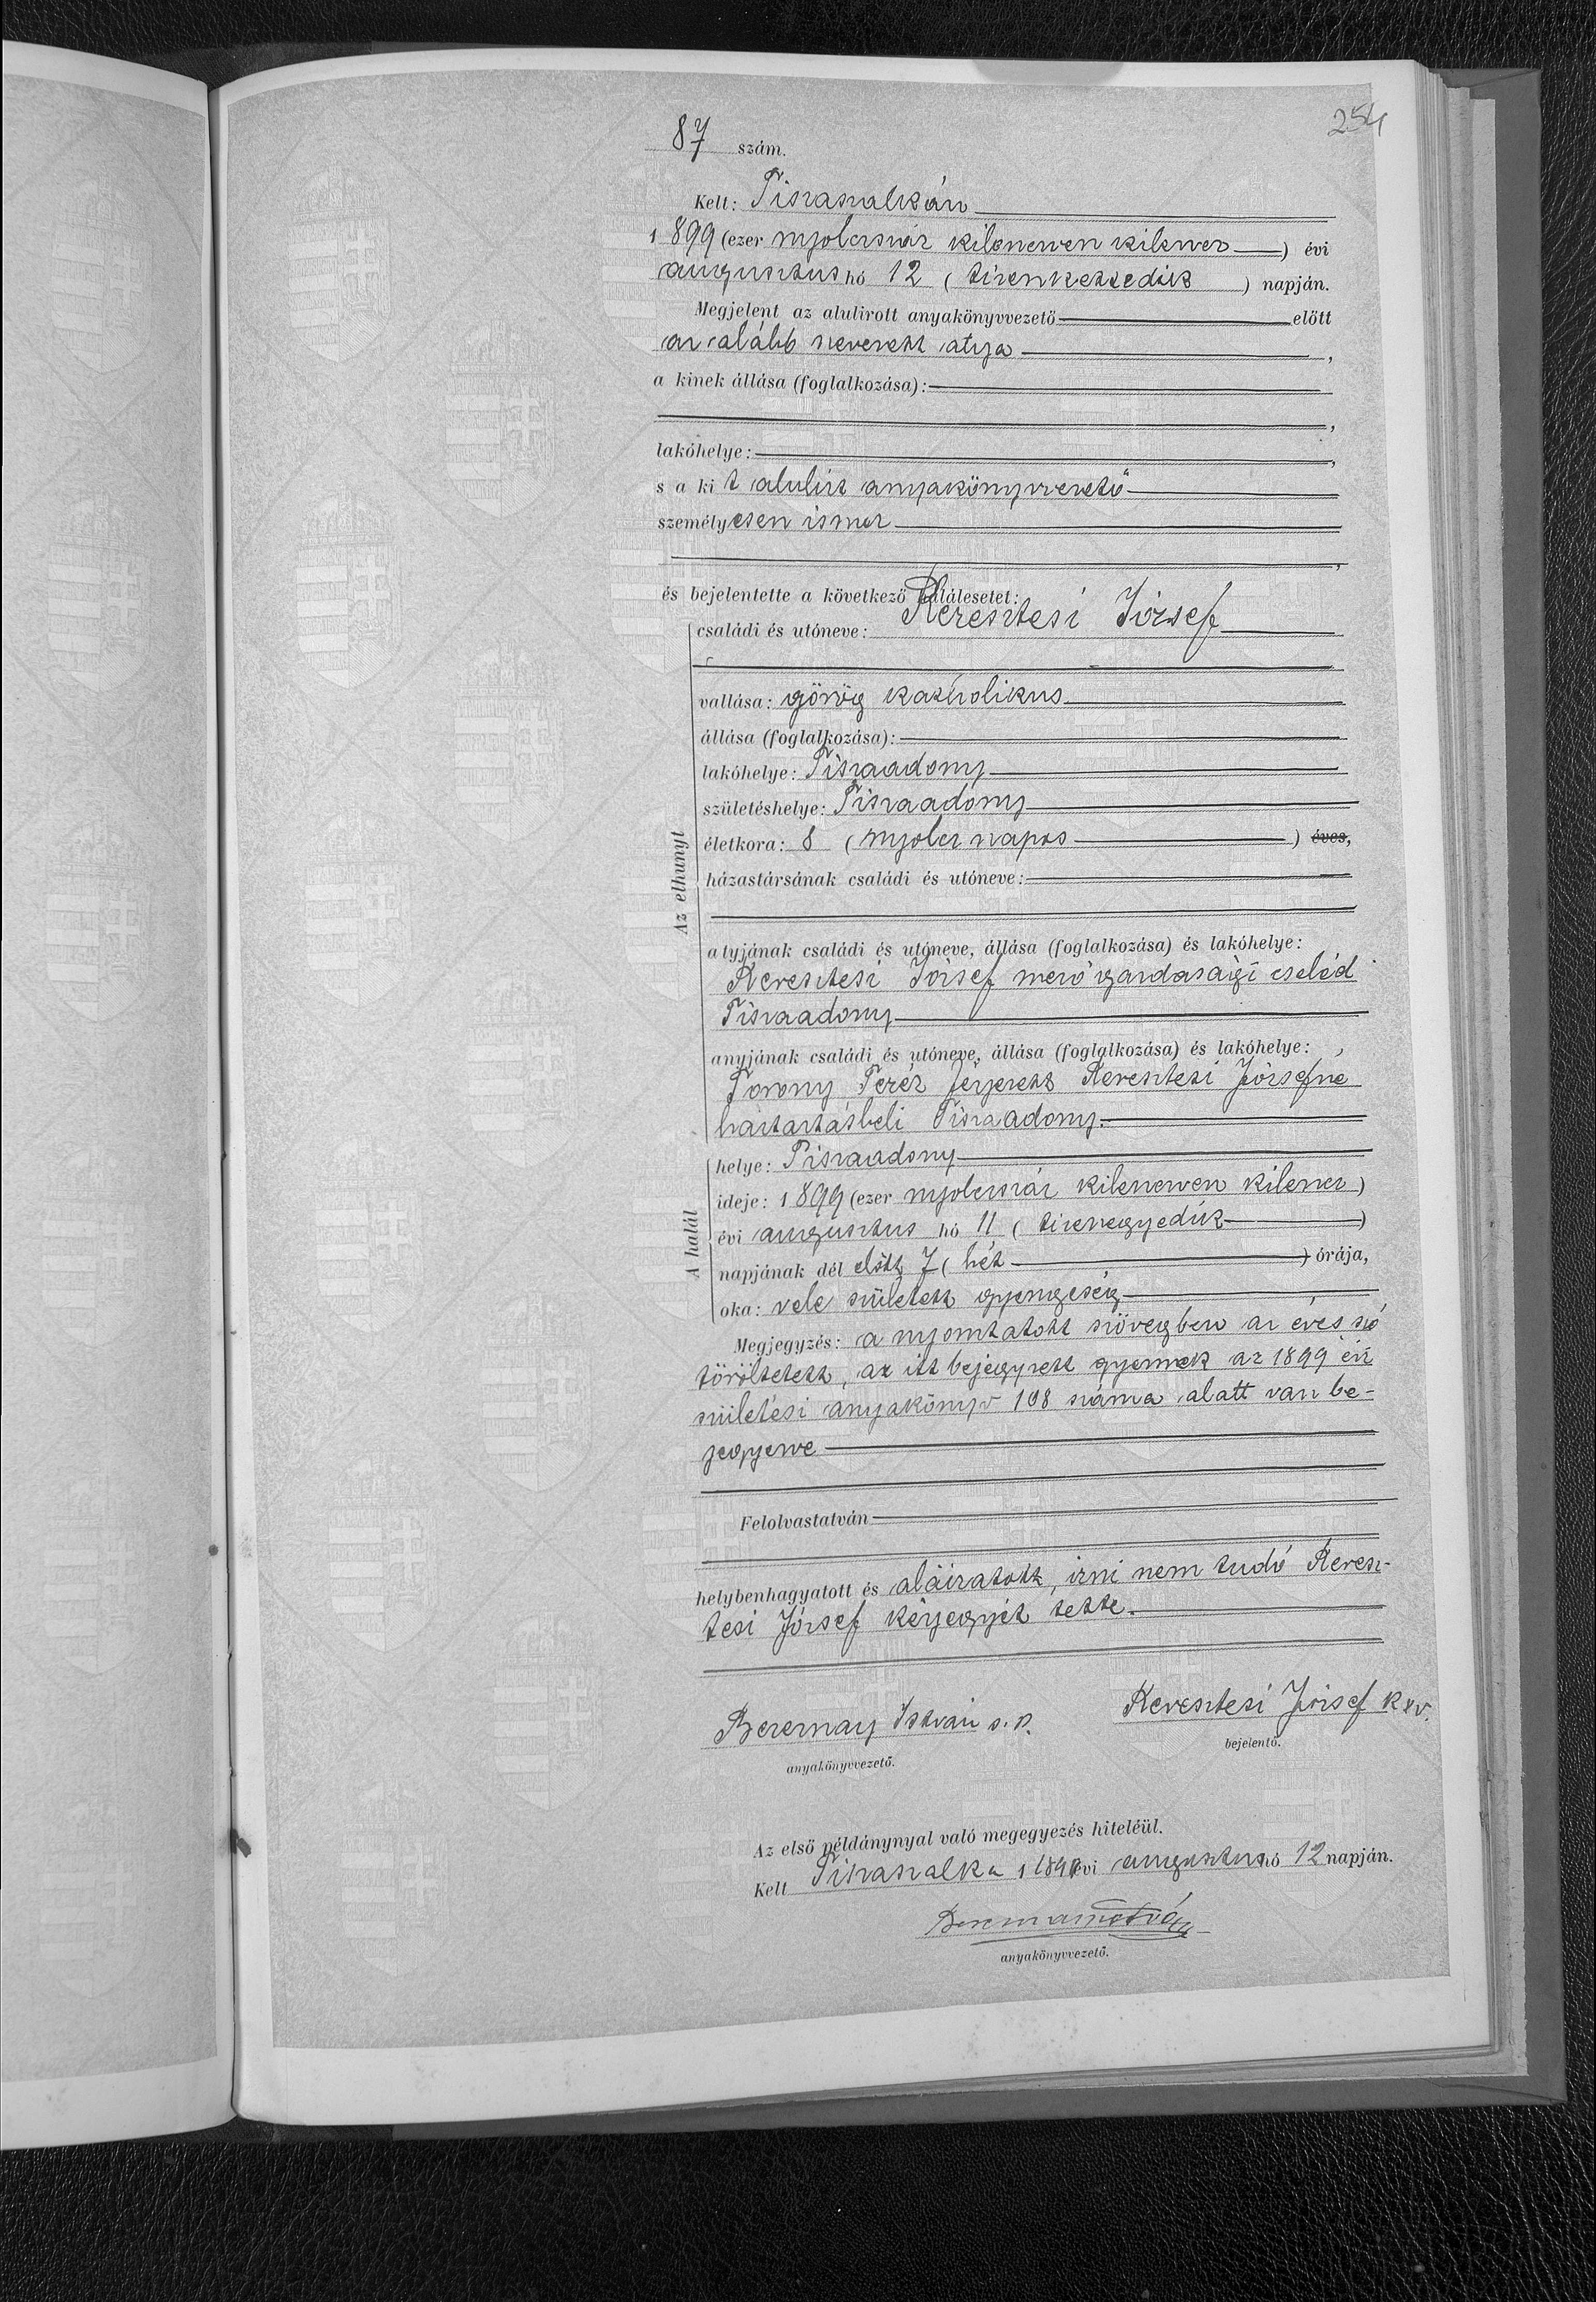 254
87 szám.
Kelt: Tiszaszalkán
1899 (ezer nyolczszáz kilenczven kilencz) évi
augusztus hó 12 (tizenkettedik) napján.
Megjelent az alulirott anyakönyvvezető előtt
az alább nevezett atya,
a kinek állása (foglalkozása):
,
lakóhelye: ,
s a kit alulirt anyakönyvvezető
személyesen ismer
,
és bejelentette a következő halálesetet:
családi és utóneve: Keresztesi József
vallása: görög katholikus
állása (foglalkozása):
lakóhelye: Tiszaadony
születéshelye: Tiszaadony
életkora: 8 (nyolcz napos) éves,
házastársának családi és utóneve:
Az elhunyt
atyjának családi és utóneve, állása (foglalkozása) és lakóhelye:
Keresztesi József mező gazdasági cseléd
Tiszaadony
anyjának családi és utóneve, állása (foglalkozása) és lakóhelye:
Torony Teréz férjezett Keresztesi Józsefné
háztartásbeli Tiszaadony.
A halál
helye: Tiszaadony
ideje: 1899 (ezer nyolczszáz kilenczven kilencz)
évi augusztus hó 11 (tizenegyedik)
napjának dél előtt 7 (hét) órája,
oka: vele született gyengeség
Megjegyzés: a nyomtatott szövegben az éves szó
töröltetett, az itt bejegyzett gyermek az 1899 évi
születési anyakönyv 108 száma alatt van be-
jegyezve
Felolvastatván
helybenhagyatott és aláiratott, irni nem tudó Keresz-
tesi József kézjegyét tette.
Berernay István s. k.
anyakönyvvezető.
Keresztesi József kxv.
bejelentő.
Az első példánynyal való megegyezés hiteléül.
Kelt Tiszaszalka 1899 évi augusztus hó 12 napján.
István
anyakönyvvezető.